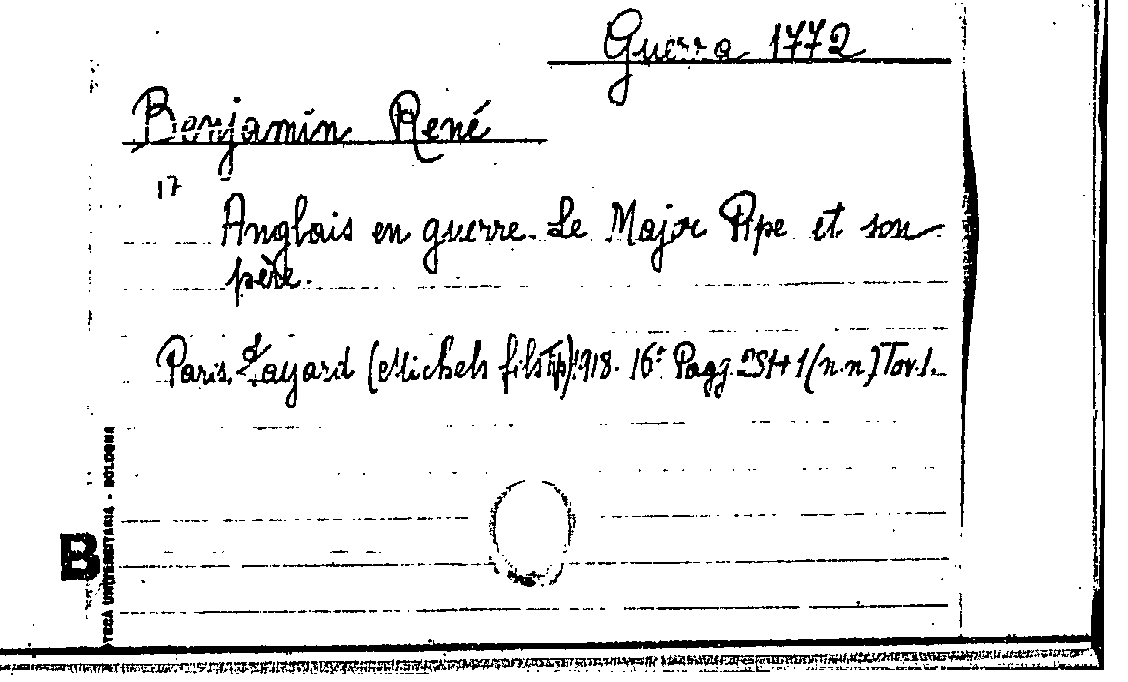 Guerra 1772
Benjamin René
17
Anglais en guerre. Le Major Pipe et son
père.
Paris, Fayard (Michels fils Tip) 1918. 16° Pagg. 251+1 (n.n) Tav. 1.
B
TECA UNIVERSITARIA - BOLOGNA